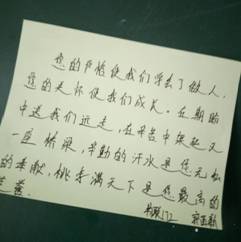 您的严格使我们学会了做人.
您的关怀使我们成长. 在期盼
中送我们远走, 在辛苦中
一座桥梁, 辛勤的汗水是您无私
的奉献, 桃李满天下是您最高的
荣誉.